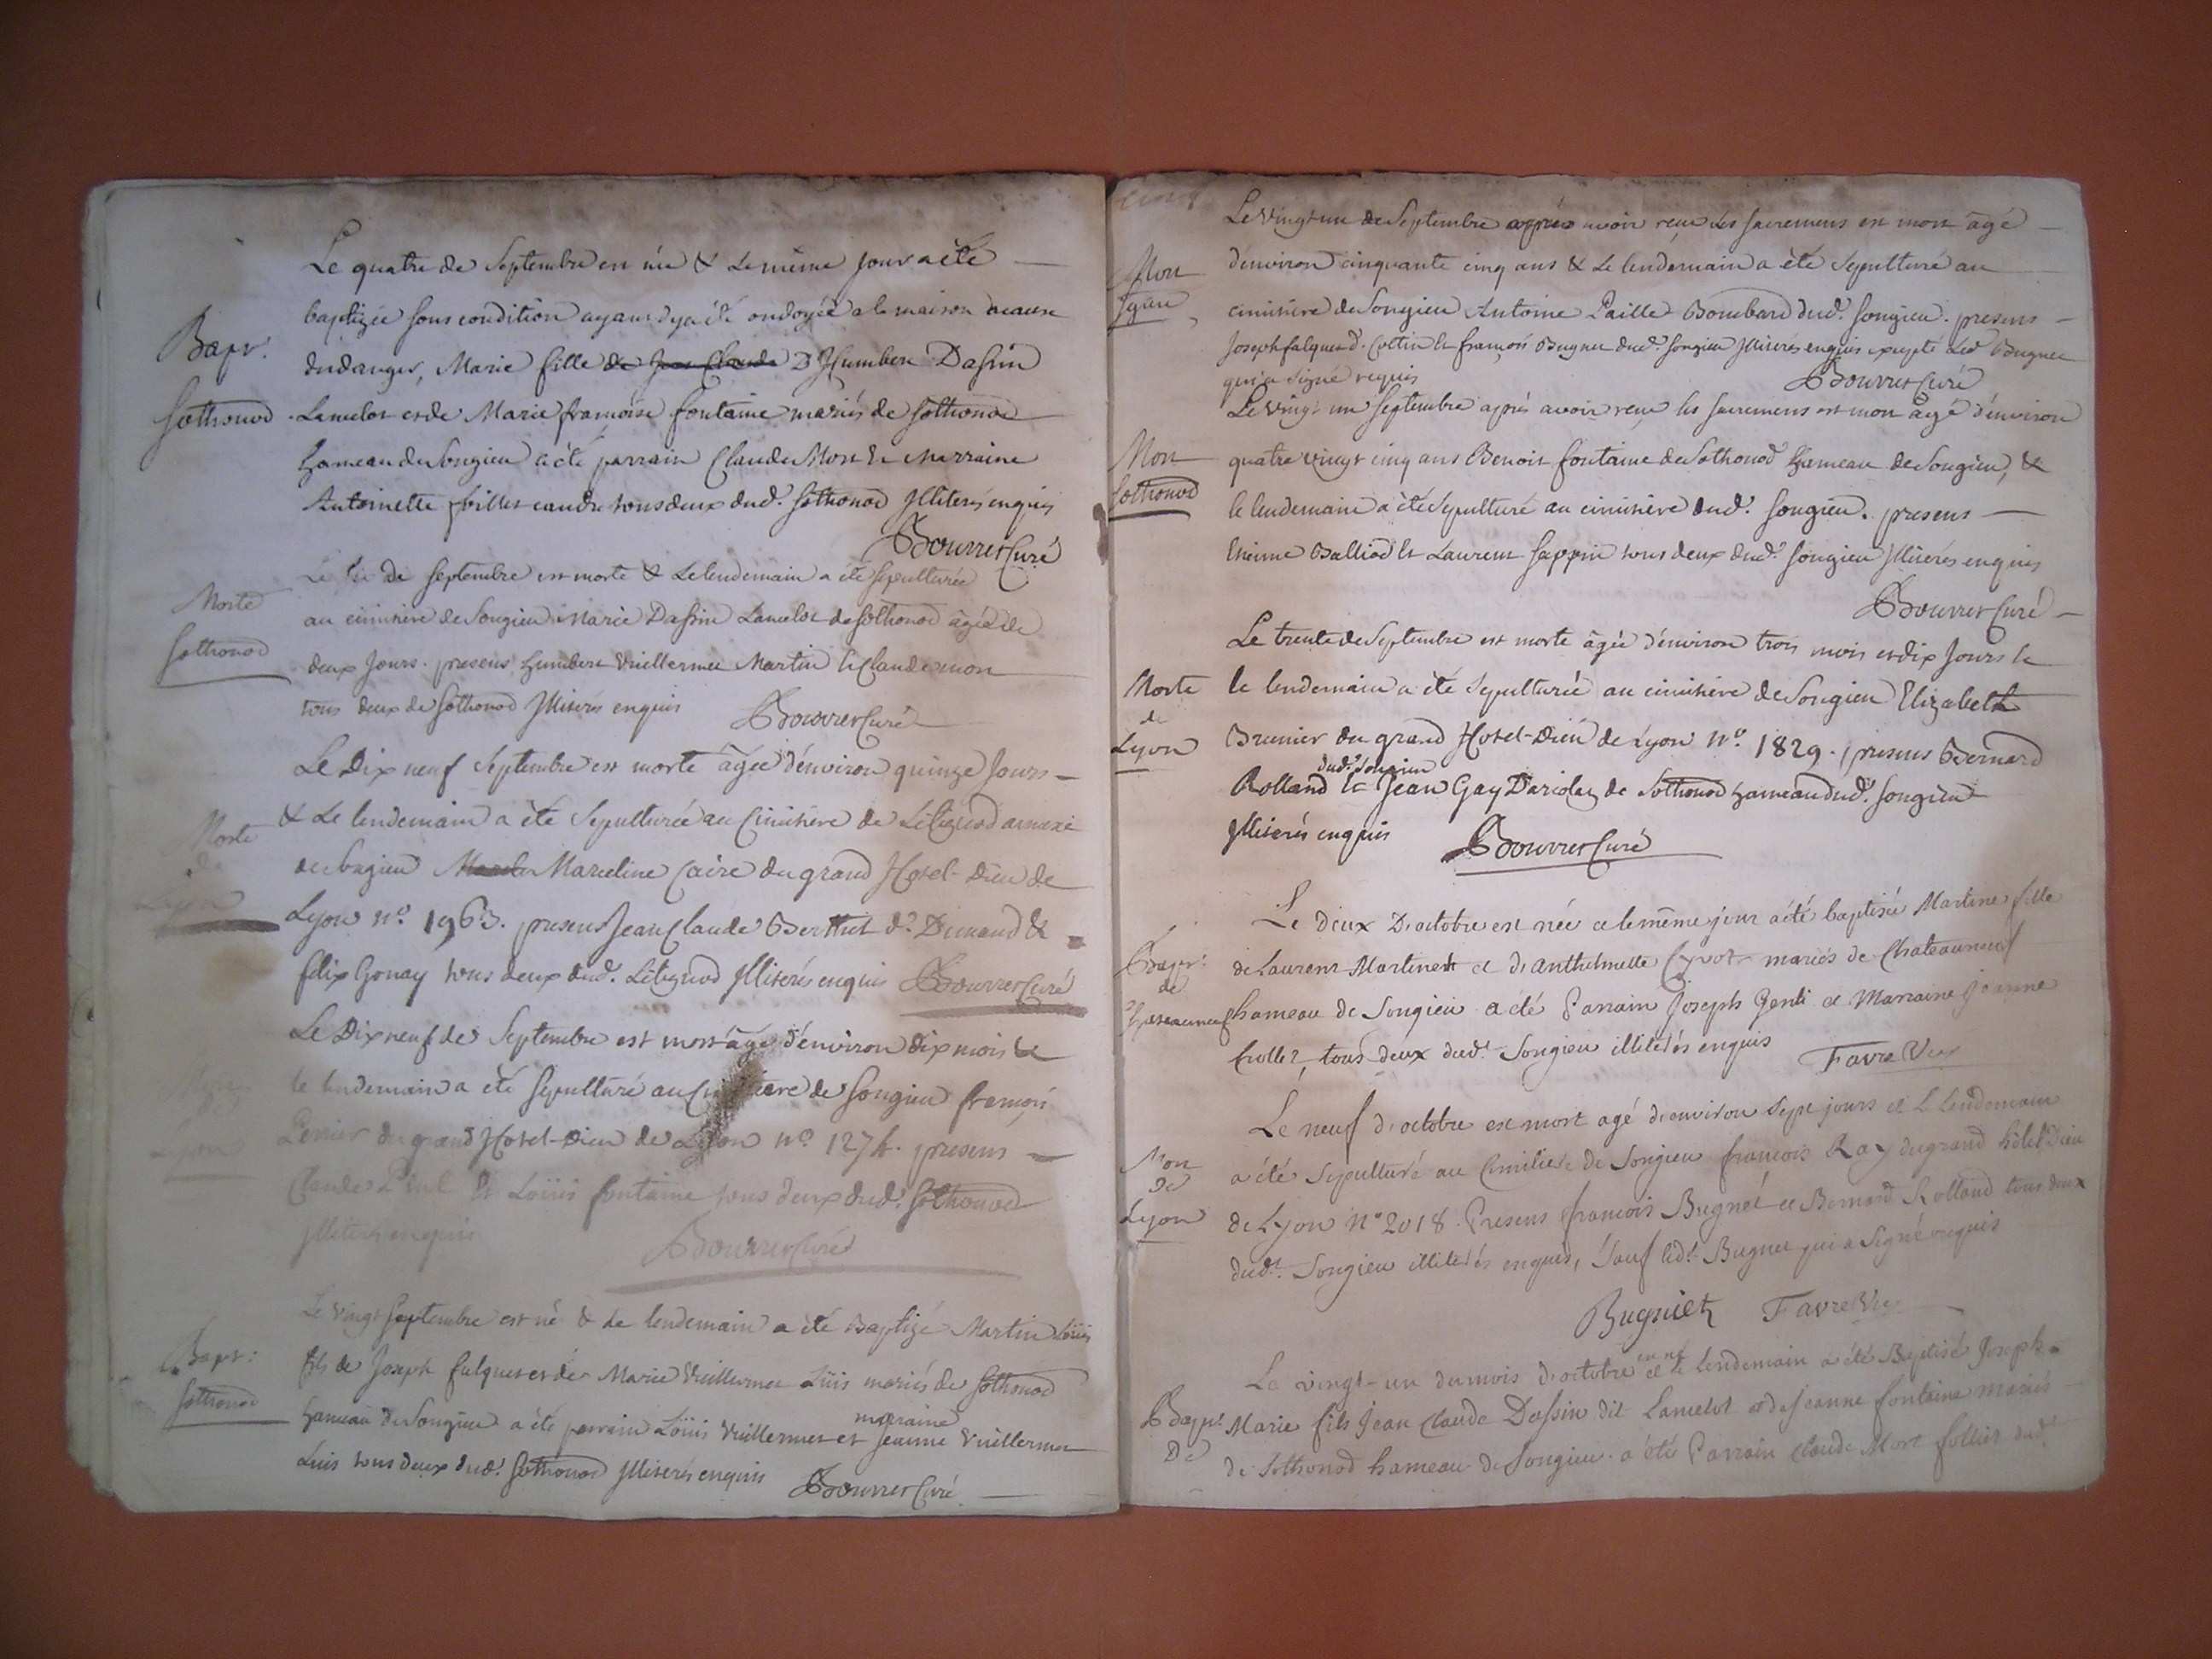 Le quatre de Septembre est née & le même jour a été
baptizée sous condition ayant dyà été ondoyée a la maison acause
Bapt. du danger, Marie fille de Jean Claude D'Humbert Dassin
Sothonod Lamelot et de Marie françoise fontaine mariés de Sothonod
hameau de Songieu a été parrain Claude Mort & marraine
Antoinette tous deux dud. Sothonod Illiterés enquis
Bouvret Curé
Le Six de Septembre est morte & le lendemain a été Sepulturée
Morte au cimitiere de Songieu Marie Dassin Lamelot de Sothonod âgée de
Sothonod deux Jours. presens humbert Vuillermet Martin & Claude mort
tous deux de Sothonod Illiterés enquis Bouvret Curé
Le Dix neuf Septembre est morte âgée d'environ quinze Jours
Morte & le lendemain a été Sepulturée au Cimitiere de Lilignod annexe
de de Songieu Marceline Caire du grand Hotel-Dieu de
Lyon Lyon n.º 1963. presens Jean Claude Berthet d. Dunand &
felix Gonay tous deux dud. Lilignod Illiterés enquis Bouvret Curé
Le Dix neuf de Septembre est mort âgé d'environ dix mois &
le lendemain a été Sepulturé au Cimitiere de Songieu françois
Lyon Perrier du grand Hotel-Dieu de Lyon n.º 1274. presens
Claude & Loüis fontaine tous deux dud. Sothonod
Illiterés enquis Bouvret Curé
Le vingt Septembre est né & le lendemain a été Baptizé Martin Loüis
Bapt: fils de Joseph falquet et de Marie Vuillermet Luis mariés de Sothonod
Sothonod hameau de Songieu a été parrain Loüis Vuillermet et maraine Jeanne Vuillermet
Luis tous deux dud. Sothonod Illiterés enquis Bouvret Curé
Le vingt un de Septembre aprés avoir reçu les sacremens est mort âgé
Mort d'environ cinquante cinq ans & le lendemain a été Sepulturé au
cimitiere de Songieu Antoine Paille Bombard dud. Songieu. presens
Joseph falquet d. Cottin & françois Bugnet dud. Songieu Illiterés enquis excepté led Bugnet
qui a signé requis Bouvret Curé
Le vingt un Septembre aprés avoir reçu les sacremens est mort âgé d'environ
Mort quatre vingt cinq ans Benoit fontaine de Sothonod hameau de Songieu, &
Sothonod le lendemain a été Sepulturé au cimitiere dud. Songieu. presens
Etienne Balliod & Laurent Sappin tous deux dud. Songieu Illiterés enquis
Bouvret Curé
Le trente de Septembre est morte âgée d'environ trois mois et dix Jours &
Morte le lendemain a été Sepulturée au cimitiere de Songieu Elizabeth
de
Lyon Brunier du grand Hotel-Dieu de Lyon n.º 1829. presens Bernard
Rolland dud. Songieu & Jean Gay Dariolaz de Sothonod hameau dud. Songieu
Illiterés enquis Bouvret Curé
Le deux D'octobre est née et le même jour a été baptisée Martine fille
Bapt: de Laurent Martinent et d'Anthelmette Cyvot mariés de Chateauneuf
de
Chateauneuf hameau de Songieu a été Parrain Joseph Genti et Marraine Jeanne
Crollet, tous deux dud. Songieu illiterés enquis Favre Vic
Le neuf d'octobre est mort agé d'environ sept jours et le lendemain
Mort a été sepulturé au Cimitiere de Songieu francois Ray du grand hôtel Dieu
De
Lyon de Lyon N.º 2018. Presens francois Bugnet et Bernard Rolland tous deux
dud. Songieu illiterés enquis, Sauf led. Bugnet qui a signé requis
Bugniet Favre Vic
Le vingt-un du mois d'octobre est né et le lendemain a été Baptisé Joseph
Bapt. Marie fils Jean Claude Dassin dit Lamelot et de Jeanne fontaine mariés
De de Sothonod hameau de Songieu. a été Parrain Claude Mort follliet dud.